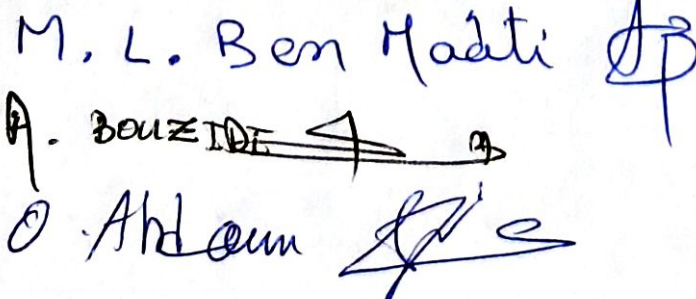 M. L. Ben Maâti
A. BOUZIDI
O. Abdoun